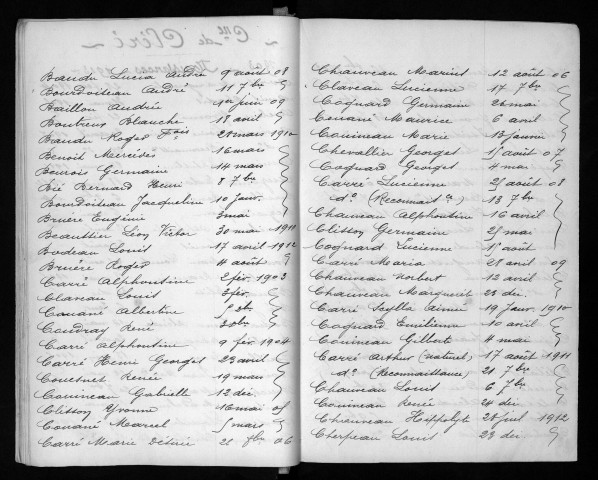 Baudu Lucia André 9 août 08
Bourdoiseau André 11 7bre
Baillon Andrée 1er juin 09
Boutreux Blanche 18 avril
Baudu Roger Fois 28 mars 1910
Benoit Mercédès 16 mars
Beurois Germaine 14 mars
Bié Bernard Henri 8 7bre
Bourdoiseau Jacqueline 10 janv.
Bruère Eugénie 3 mai
Beaussier Léon Victor 30 mai 1911
Bodeau Louis 17 avril 1912
Bruère Roger 4 août
Carré Alphonsine 2 fév. 1903
Claveau Louis 3 fév.
Couané Albertine
Coudray René
Carré Alphonsine 9 fév. 1904
Carré Henri Georges 23 avril
Couesnet Renée 19 mars
Couineau Gabrielle 12 déc.
Clisson Yvonne 16 mai 05
Couané Marcel 5 mars
Carré Marie Désirée 06
Cne de Cléré
Chauveau Marius 12 août 06
Claveau Lucienne 17 7bre
Coquard Germaine 26 mai
Couané Maurice 6 avril
Couineau Marie 13 janvier
Chevallier Georges 15 août 07
Coquard Georges 4 mai
Carré Lucienne 25 août 08
do (Reconnait ce.) 13 7bre
Chauveau Alphonsine 16 avril
Clisson Germaine 25 mai
Coquard Lucienne 1er août
Carré Maria 28 avril 09
Chauveau Norbert 12 avril
Chauveau Marguerite 25 déc.
Carré Scylla Aimée 19 janv. 1910
Coquard Emilienne 10 avril
Couineau Gilberte 4 mai
Carré Arthur (naturel) 17 août 1911
do (Reconnaissance) 21 7bre
Chauveau Louis 6 7bre
Couineau Renée 24 déc
Chauveau Hippolyte 28 juil 1912
Cherpeau Louis 23 déc